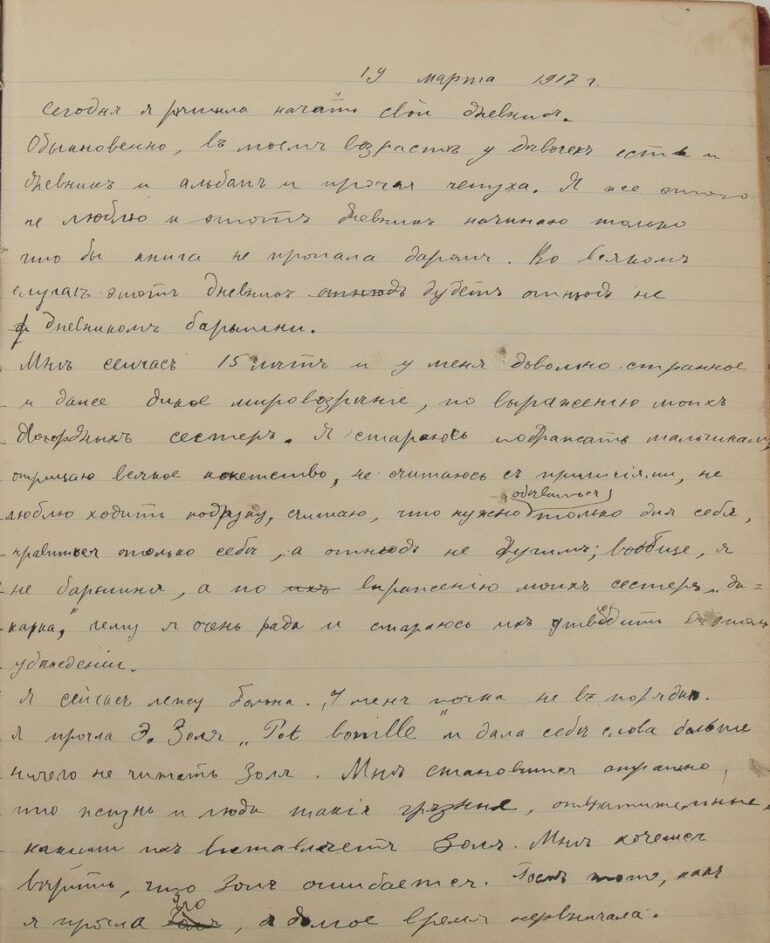 19 марта 1917 г.
Сегодня я рѣшила начать свой дневникъ.
Обыкновенно, въ моемъ возрастѣ у дѣвочекъ есть и
дневникъ и альбомъ и прочая чепуха. Я все этого
не люблю и этотъ дневникъ начинаю только
что бы книга не пропала даромъ. Во всякомъ
случаѣ этотъ дневникъ отнюдь будетъ отнюдь не
дневникомъ барышни.
Мнѣ сейчасъ 15 лѣтъ и у меня довольно странное
и даже дикое мировозрѣніе, по выраженію моихъ
двоюродныхъ сестеръ. Я стараюсь подражать мальчикамъ,
отрицаю всякое кокетство, не считаюсь съ приличіями, не
люблю ходить подруку, считаю, что нужно одѣваться только для себя,
нравиться только себѣ, а отнюдь не другимъ; вообще, я
не барышня, а по ихъ выраженію моихъ сестеръ „ди=
карка," чему я очень рада и стараюсь ихъ утвердить въ этомъ
убѣжденіи.
Я сейчасъ лежу больна. У меня почка не въ порядкѣ.
Я прочла Э. Золя „Pot bouille" и дала себѣ слова больше
ничего не читать Золя. Мнѣ становится страшно,
что жизнь и люди такія грязныя, отвратительные
какими ихъ выставляетъ Золя. Мнѣ хочется
вѣрить, что Золя ошибается. Послѣ того, какъ
я прочла Золя это, я долгое время нервничала.